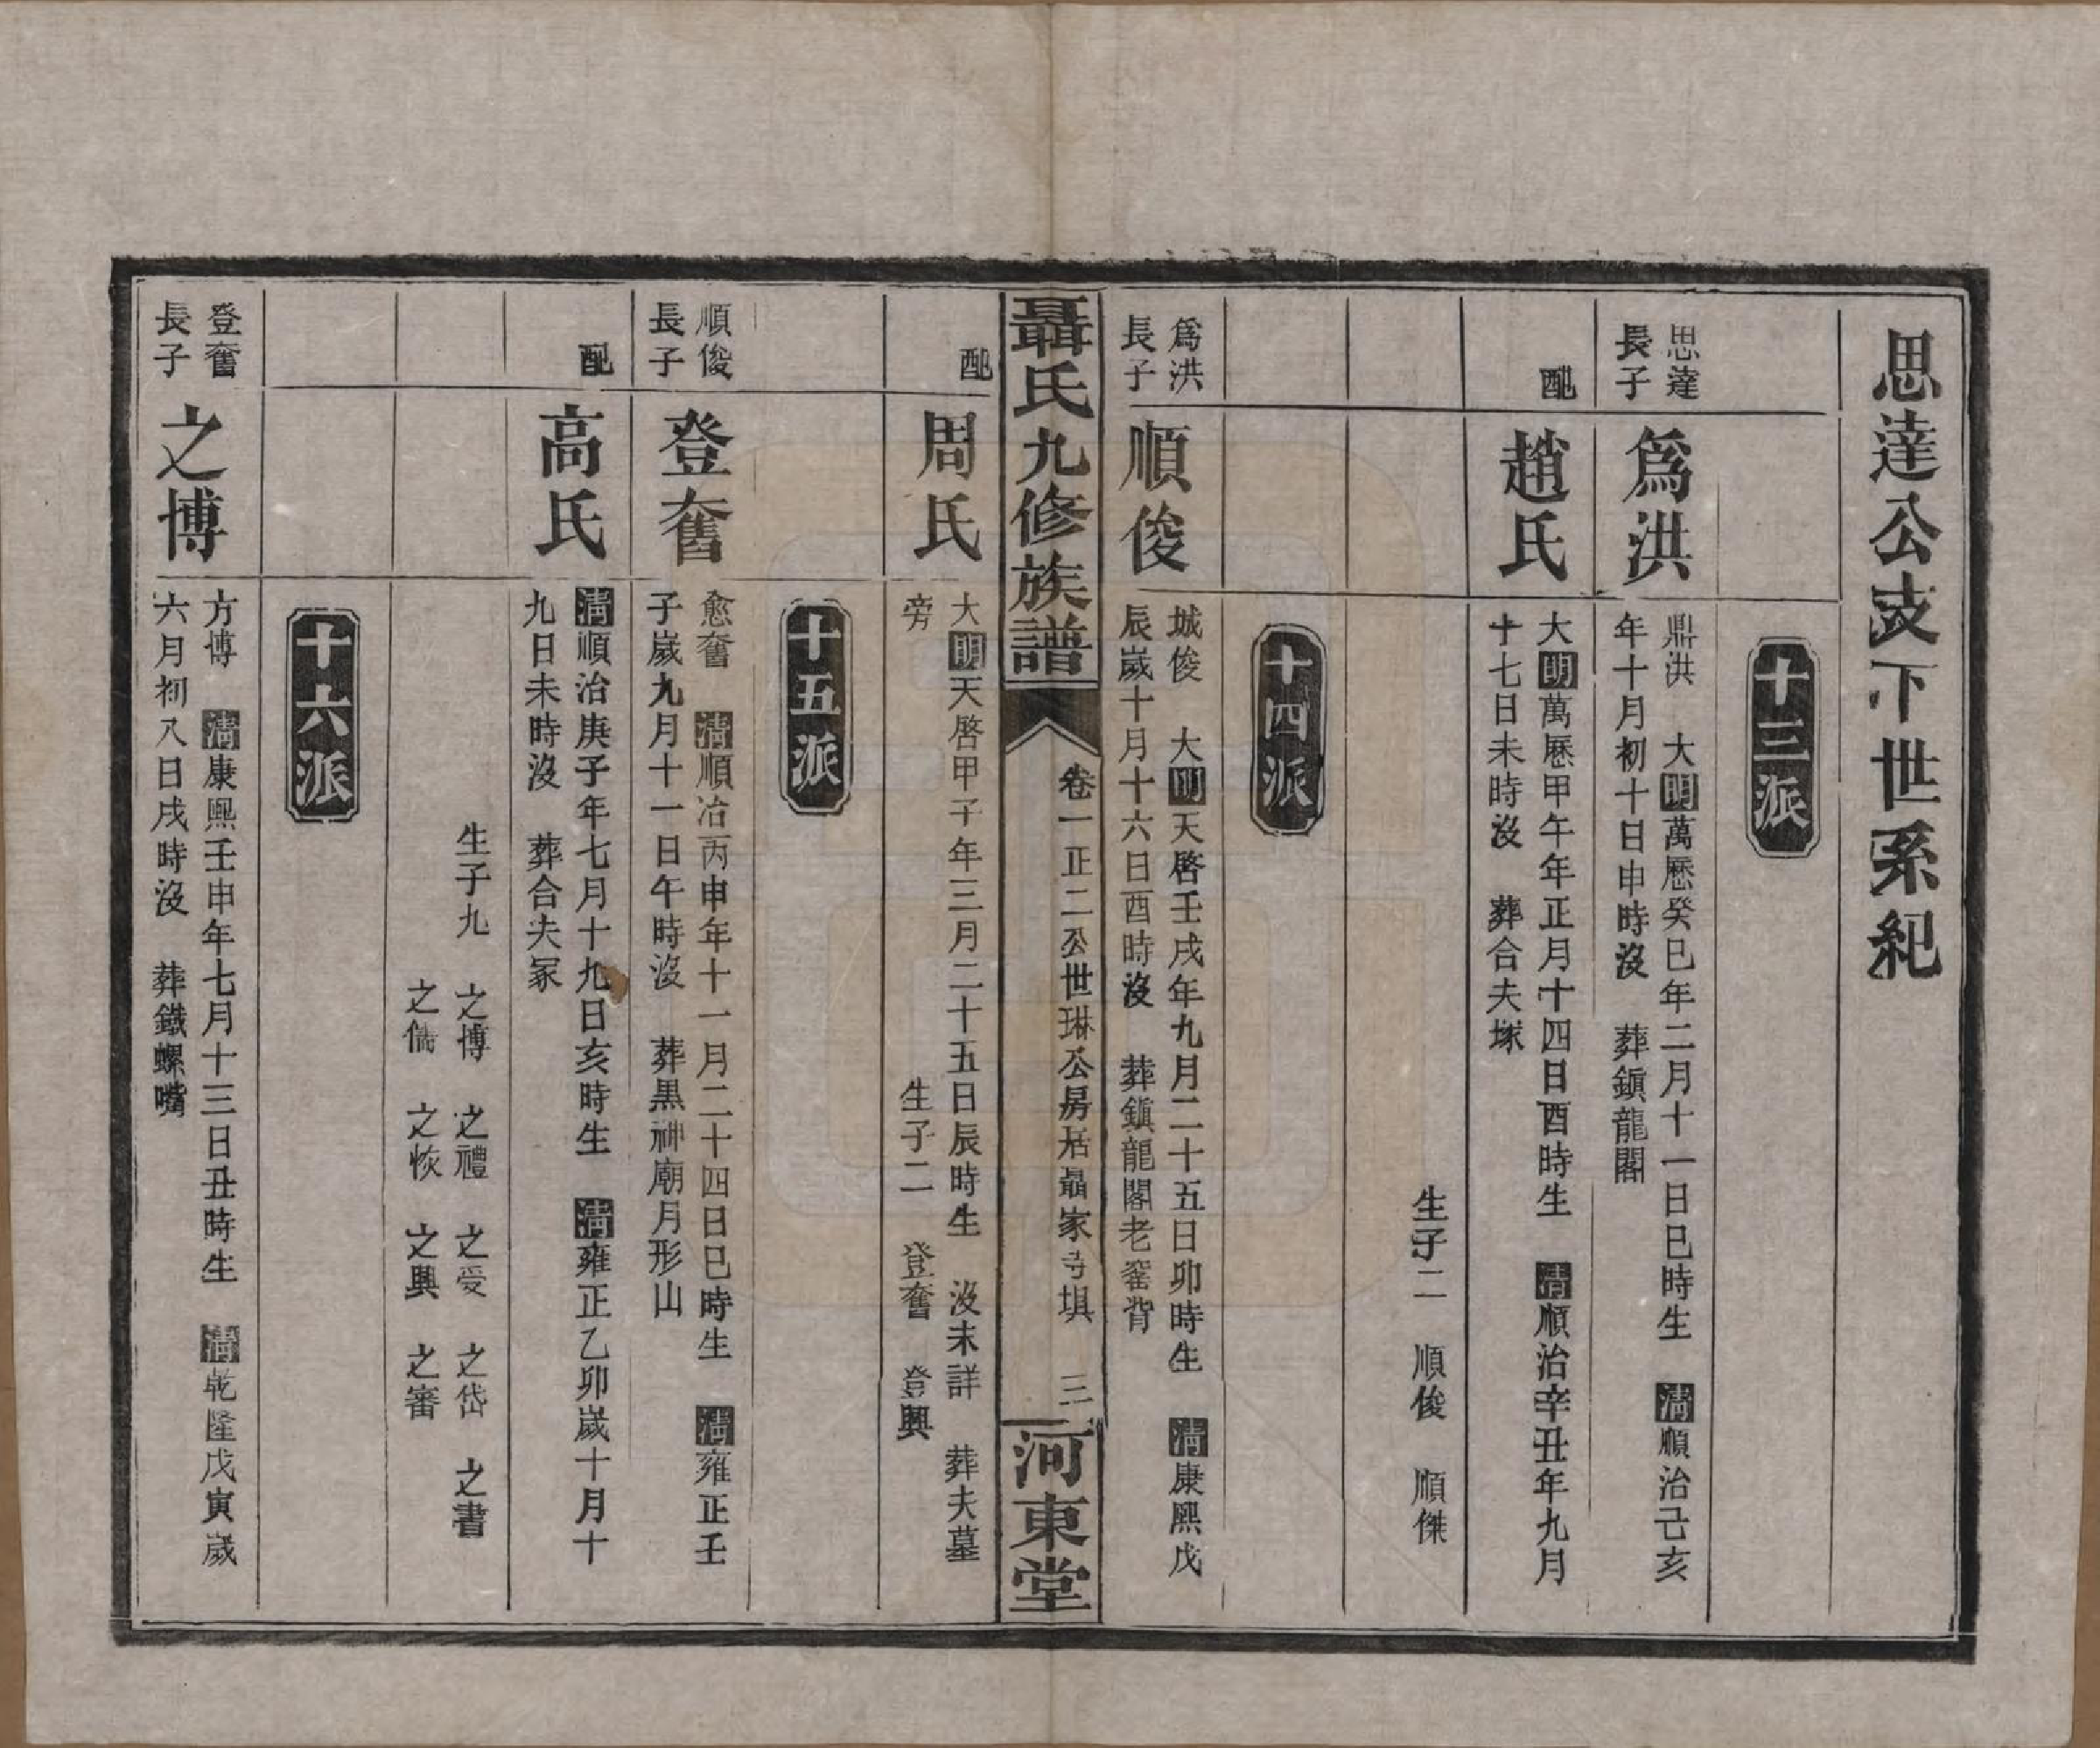 思達公支下世系紀
十三派
思達
長子
爲洪
鼎洪　大明萬歷癸巳年二月十一日巳時生　清順治己亥
年十月初十日申時沒　葬鎮龍閣
配
趙氏
大明萬歷甲午年正月十四日酉時生　清順治辛丑年九月
十七日未時沒　葬合夫塚
生子二　順俊　順傑
十四派
爲洪
長子
順俊
城俊　大明天啓壬戌年九月二十五日卯時生　清康熙戊
辰歲十月十六日酉時沒　葬鎮龍閣老窰背
聶氏九修族譜
卷一正二公世琳公房居聶家寺塅　三
河東堂
配
周氏
大明天啓甲子年三月二十五日辰時生　沒未詳　葬夫墓
旁
生子二　登奮　登興
十五派
順俊
長子
登奮
愈奮　清順治丙申年十一月二十四日巳時生　清雍正壬
子歲九月十一日午時沒　葬黑神廟月形山
配
高氏
清順治庚子年七月十九日亥時生　清雍正乙卯歲十月十
九日未時沒　葬合夫冢
生子九　之博　之禮　之受　之岱　之書
之儒　之恢　之興　之審
十六派
登奮
長子
之博
方博　清康熙壬申年七月十三日丑時生　清乾隆戊寅歲
六月初八日戌時沒　葬鐵螺嘴